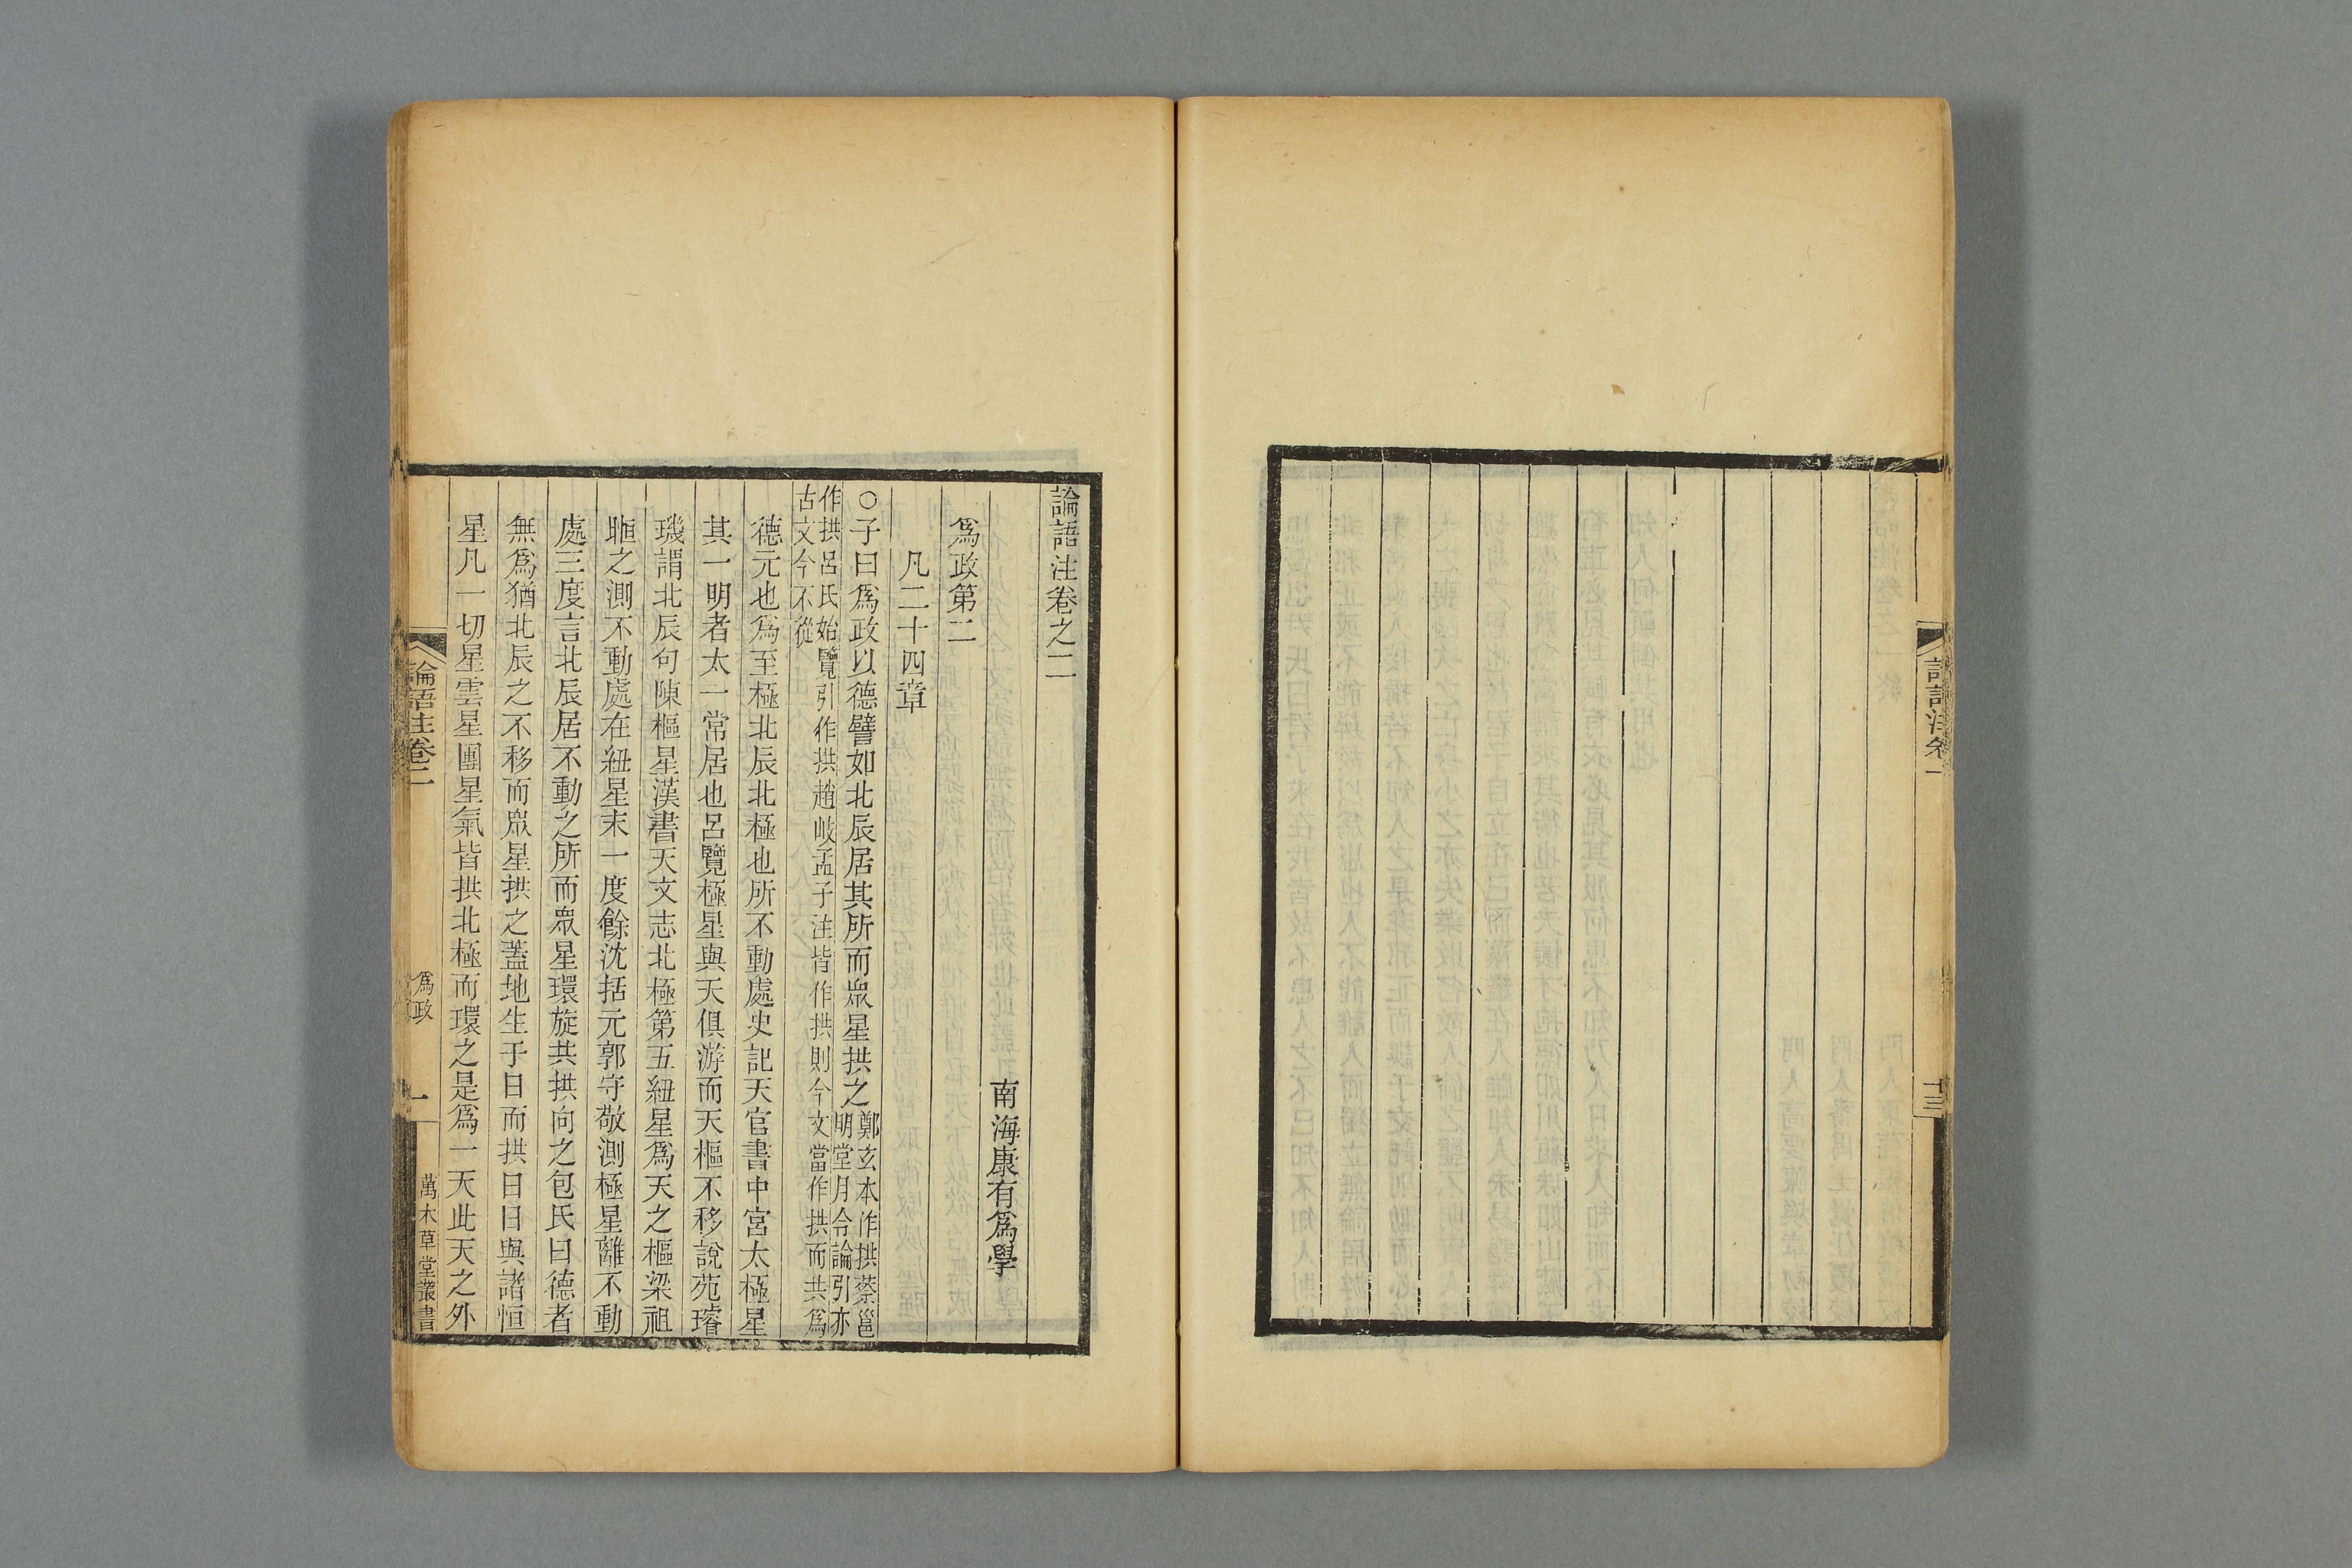 十三
論語注卷之二
南海康有爲學
爲政第二
凡二十四章
○子曰爲政以德譬如北辰居其所而眾星拱之鄭玄本作拱蔡邕
明堂月令論引亦
作拱呂氏始覽引作拱趙岐孟子注皆作拱則今文當作拱而共爲
古文今不從
德元也爲至極北辰北極也所不動處史記天官書中宮太極星
其一明者太一常居也呂覽極星與天俱游而天樞不移說苑璿
璣謂北辰句陳樞星漢書天文志北極第五紐星爲天之樞梁祖
暅之測不動處在紐星末一度餘沈括元郭守敬測極星離不動
處三度言北辰居不動之所而眾星環旋共拱向之包氏曰德者
無爲猶北辰之不移而眾星拱之蓋地生于日而拱日日與諸恒
星凡一切星雲星團星氣皆拱北極而環之是爲一天此天之外
論語注卷二
爲政
一
萬木草堂叢書